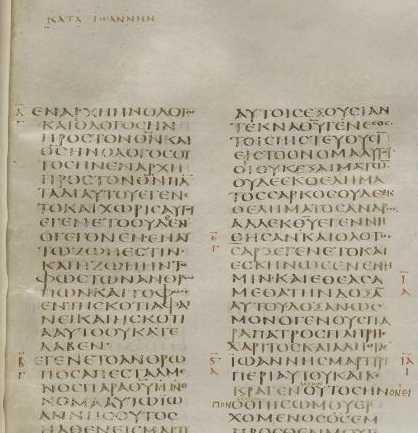 ΚΑΤΑ ΙΩΑΝΝΗΝ
ΕΝΑΡΧΗΗΝΟΛΟΓΟϹ
ΚΑΙΟΛΟΓΟϹΗΝ
ΠΡΟϹΤΟΝΘ̅Ν̅ΚΑΙ
Θ̅Ϲ̅ΗΝΟΛΟΓΟϹΟΥ
ΤΟϹΗΝΕΝΑΡΧΗ
ΠΡΟϹΤΟΝΘ̅Ν̅ΠΑ
ΤΑΔΙΑΥΤΟΥΕΓΕΝΕ
ΤΟΚΑΙΧΩΡΙϹΑΥΤΟΥ
ΕΓΕΝΕΤΟΟΥΔΕΝ
ΟΓΕΓΟΝΕΝΕΝΑΥ
ΤΩΖΩΗΕϹΤΙΝ
ΚΑΙΗΖΩΗΗΝΤΟ
ΦΩϹΤΩΝΑΝΘΡΩ
ΠΩΝΚΑΙΤΟΦΩϹ
ΕΝΤΗϹΚΟΤΙΑΦΑΙ
ΝΕΙΚΑΙΗϹΚΟΤΙ
ΑΑΥΤΟΟΥΚΑΤΕ
ΛΑΒΕΝ
ΕΓΕΝΕΤΟΑΝΘΡΩ
ΠΟϹΑΠΕϹΤΑΛΜΕ
ΝΟϹΠΑΡΑΘ̅Υ̅ΗΝΟ
ΝΟΜΑΑΥΤΩΙΩ
ΑΝΝΗϹΟΥΤΟϹ
ΗΛΘΕΝΕΙϹΜΑΡΤΥ
ΑΥΤΟΙϹΕΞΟΥϹΙΑΝ
ΤΕΚΝΑΘ̅Υ̅ΓΕΝΕϹΘΑΙ
ΤΟΙϹΠΙϹΤΕΥΟΥϹΙ
ΕΙϹΤΟΟΝΟΜΑΑΥΤΟΥ
ΟΙΟΥΚΕΞΑΙΜΑΤΩ
ΟΥΔΕΕΚΘΕΛΗΜΑ
ΤΟϹϹΑΡΚΟϹΟΥΔΕΕΚ
ΘΕΛΗΜΑΤΟϹΑΝΔΡΟϹ
ΑΛΛΕΚΘ̅Υ̅ΕΓΕΝΝΗ
ΘΗϹΑΝΚΑΙΟΛΟΓΟϹ
ϹΑΡΞΕΓΕΝΕΤΟΚΑΙ
ΕϹΚΗΝΩϹΕΝΕΝΗ
ΜΙΝΚΑΙΕΘΕΑϹΑ
ΜΕΘΑΤΗΝΔΟΞΑ
ΑΥΤΟΥΔΟΞΑΝΩϹ
ΜΟΝΟΓΕΝΟΥϹΠΑ
ΡΑΠΑΤΡΟϹΠΛΗΡΗϹ
ΧΑΡΙΤΟϹΚΑΙΑΛΗΘΙ
ΙΩΑΝΝΗϹΜΑΡΤΥΡΙ
ΠΕΡΙΑΥΤΟΥΚΑΙΚΕ
ΚΡΑΓΕΝΟΥΤΟϹΗΝ ΟΝΕΙ
ΠΟΝ ΟΟΠΙϹΩΜΟΥΕΡ
ΧΟΜΕΝΟϹΟϹΕΜ
ΠΡΟϹΘΕΝΜΟΥΓΕ